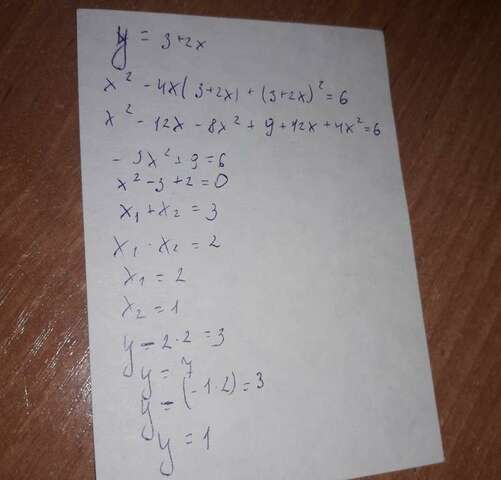 y = 3+2x
x² - 4x(3+2x) + (3+2x)² = 6
x² - 12x - 8x² + 9 + 12x + 4x² = 6
- 3x² + 9 = 6
x² - 3 + 2 = 0
x₁ + x₂ = 3
x₁ · x₂ = 2
x₁ = 2
x₂ = 1
y - 2·2 = 3
y = 7
y - (-1·2) = 3
y = 1